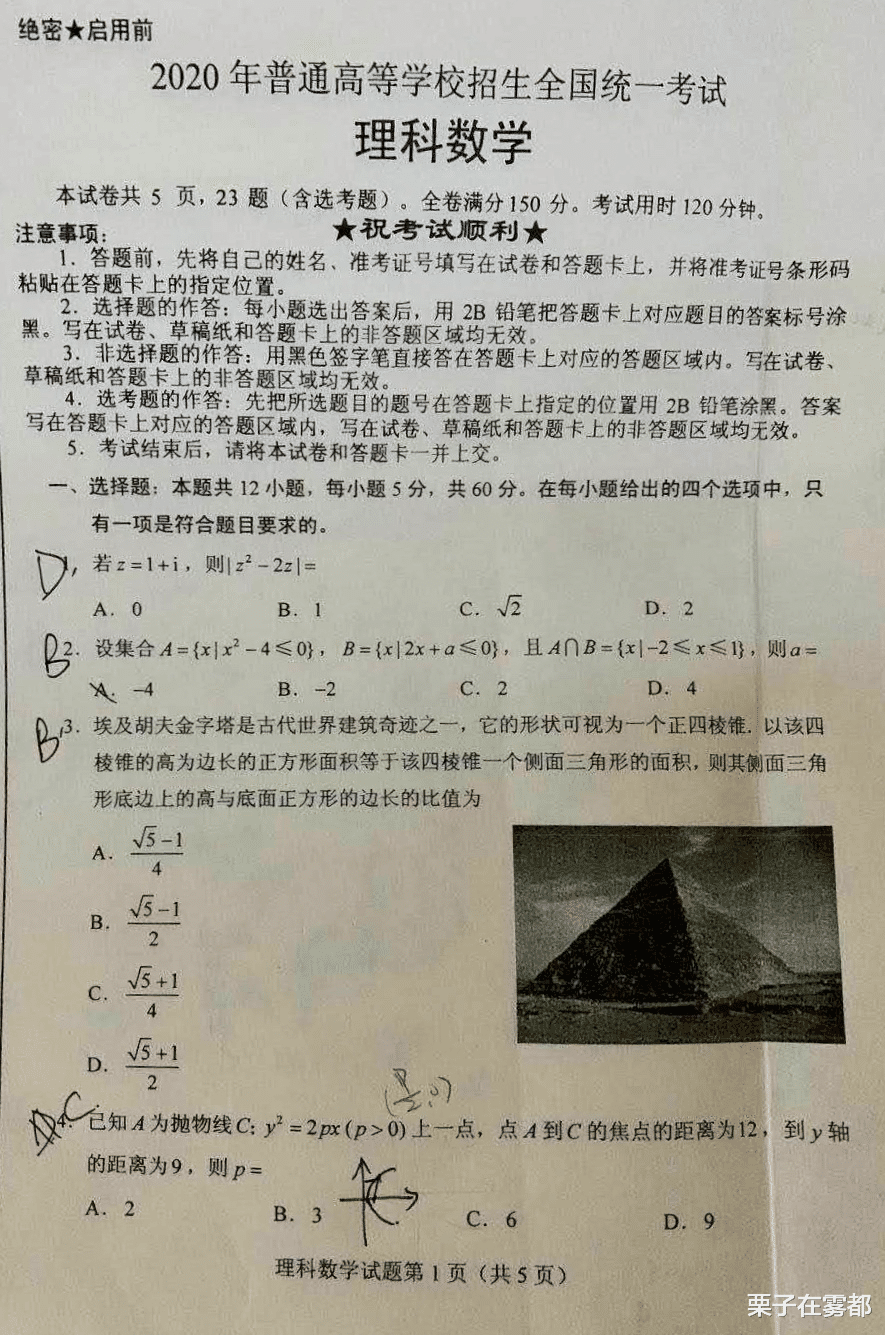 绝密★启用前
2020 年普通高等学校招生全国统一考试
理科数学
本试卷共 5 页，23 题（含选考题）。全卷满分 150 分。考试用时 120 分钟。
★祝考试顺利★
注意事项：
1．答题前，先将自己的姓名、准考证号填写在试卷和答题卡上，并将准考证号条形码
粘贴在答题卡上的指定位置。
2．选择题的作答：每小题选出答案后，用 2B 铅笔把答题卡上对应题目的答案标号涂
黑。写在试卷、草稿纸和答题卡上的非答题区域均无效。
3．非选择题的作答：用黑色签字笔直接答在答题卡上对应的答题区域内。写在试卷、
草稿纸和答题卡上的非答题区域均无效。
4．选考题的作答：先把所选题目的题号在答题卡上指定的位置用 2B 铅笔涂黑。答案
写在答题卡上对应的答题区域内，写在试卷、草稿纸和答题卡上的非答题区域均无效。
5．考试结束后，请将本试卷和答题卡一并上交。
一、选择题：本题共 12 小题，每小题 5 分，共 60 分。在每小题给出的四个选项中，只
有一项是符合题目要求的。
D 1. 若 z=1+i，则|z²－2z|=
A. 0 B. 1 C. √2 D. 2
B 2. 设集合 A={x|x²－4≤0}，B={x|2x+a≤0}，且 A∩B={x|－2≤x≤1}，则 a=
A. －4 B. －2 C. 2 D. 4
B 3. 埃及胡夫金字塔是古代世界建筑奇迹之一，它的形状可视为一个正四棱锥．以该四
棱锥的高为边长的正方形面积等于该四棱锥一个侧面三角形的面积，则其侧面三角
形底边上的高与底面正方形的边长的比值为
A. (√5－1)/4
B. (√5－1)/2
C. (√5+1)/4
D. (√5+1)/2
C 4. 已知 A 为抛物线 C: y²=2px(p>0) 上一点，点 A 到 C 的焦点的距离为 12，到 y 轴
的距离为 9，则 p=
A. 2 B. 3 C. 6 D. 9
理科数学试题第 1 页（共 5 页）
栗子在雾都